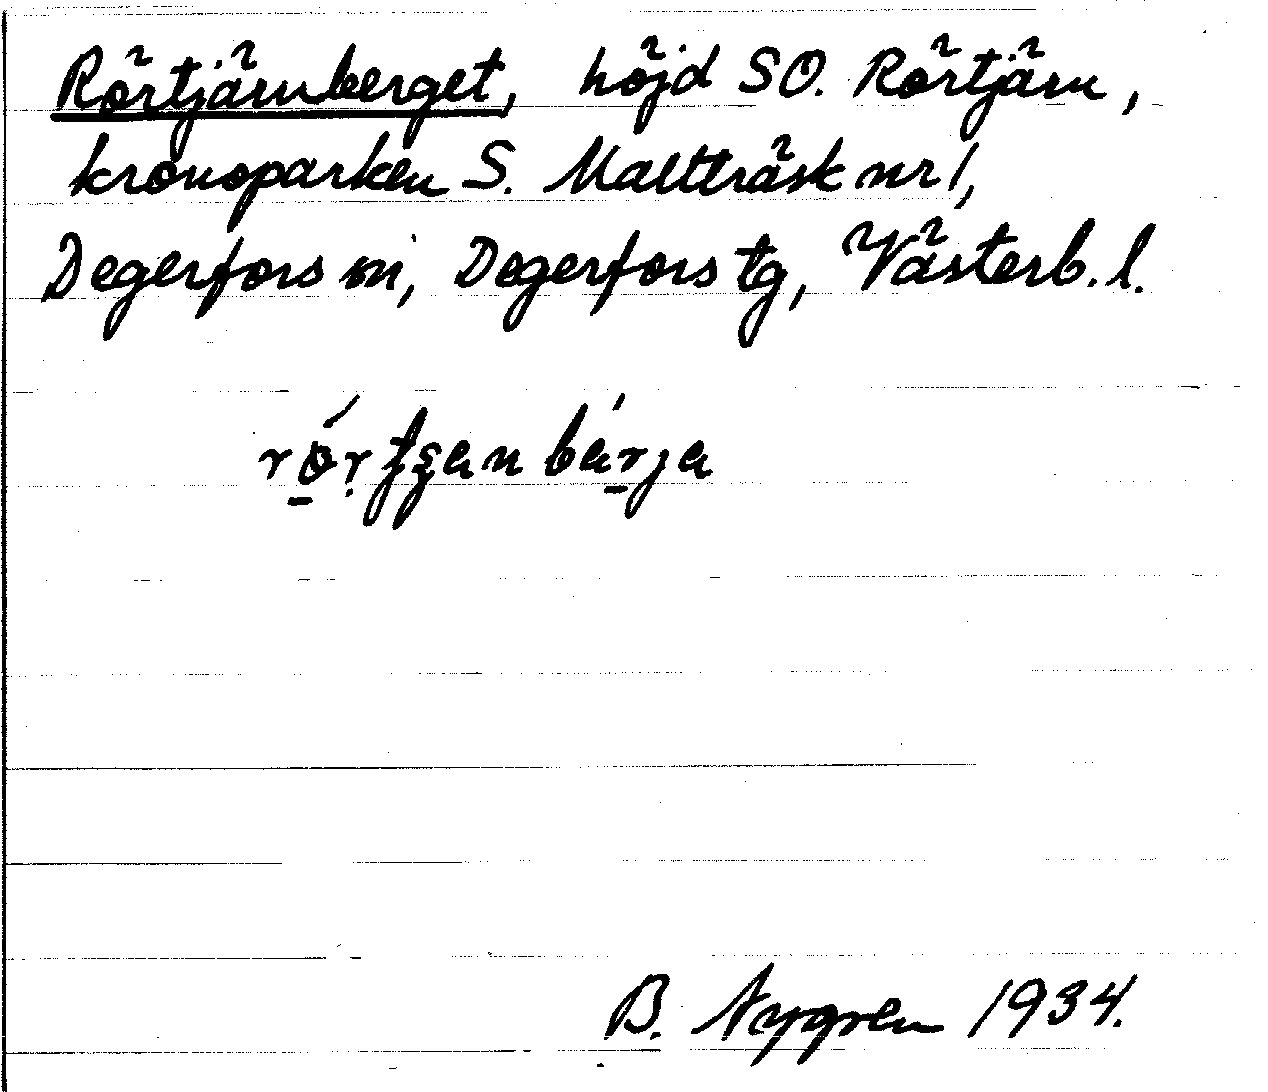 Rörtjärnberget, höjd SO. Rörtjärn,
kronoparken S. Maltträsk nr 1,
Degerfors sn, Degerfors tg, Västerb. l.
B. Nygren 1934.